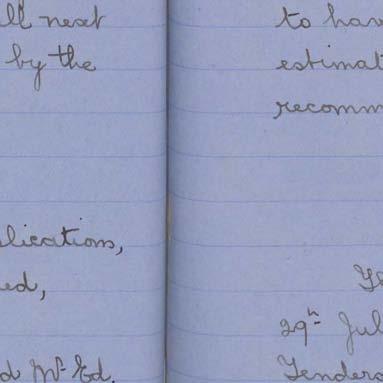 ll next
by the
lications,
ed,
d Mr Ed.
to hav
estimat
recomm
29th Jul
Tenders